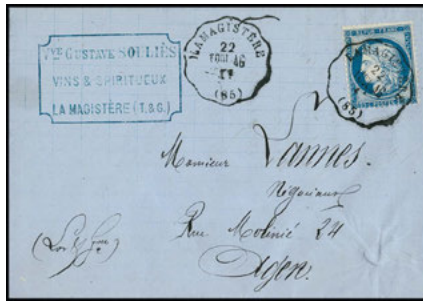 Vve GUSTAVE SOULIÈS
VINS & SPIRITUEUX
LA MAGISTÈRE (T.&G.)
LAMAGISTÈRE
22
(85)
LAMAGIS
22
(85)
Monsieur Lannes.
Négociant
Rue Molinié 24
Agen.